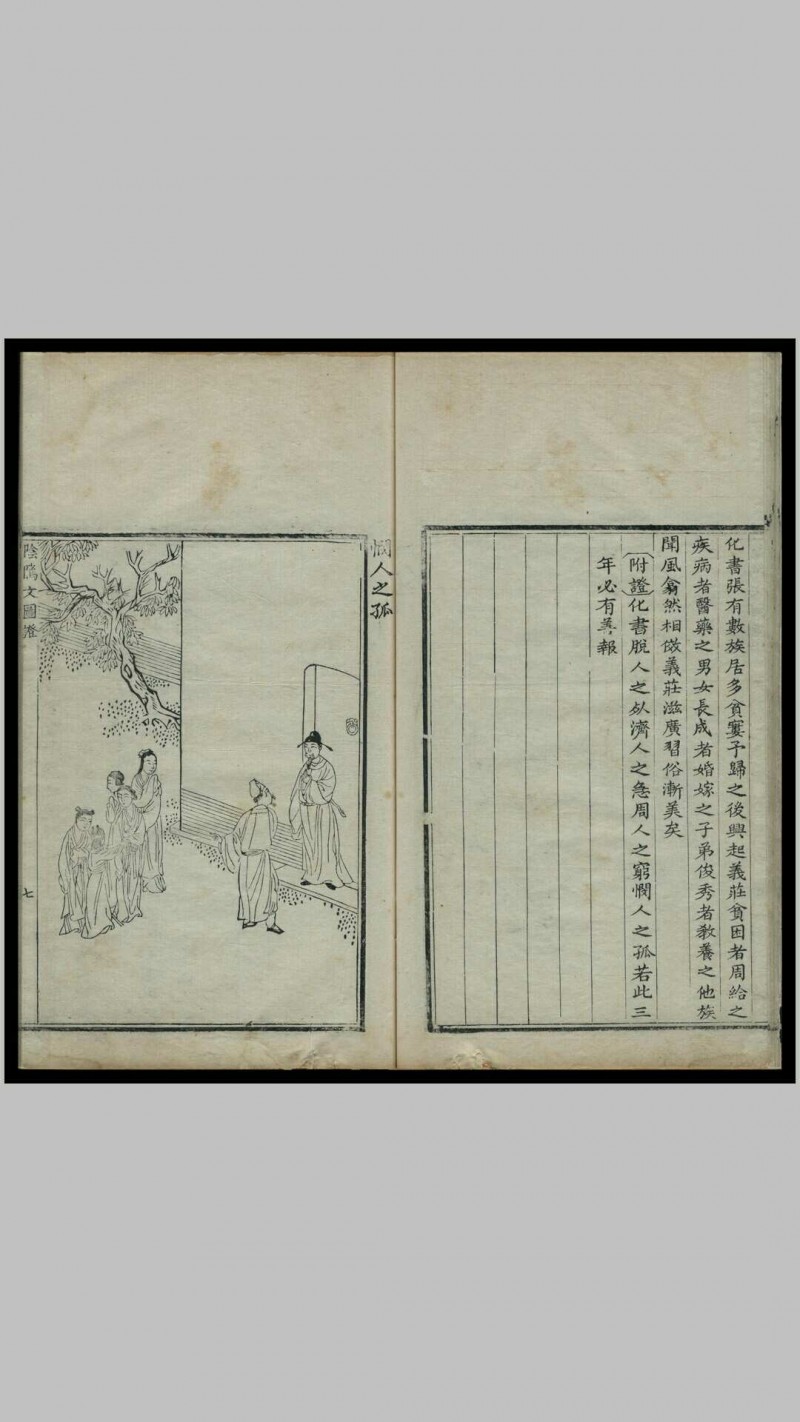 化書張有數族居多貧窶予歸之後興起義莊貧困者周給之
疾病者醫藥之男女長成者婚嫁之子弟俊秀者教養之他族
聞風翕然相倣義莊滋廣習俗漸美矣
附證化書脫人之厄濟人之急周人之窮憫人之孤若此三
年必有善報
憫人之孤
陰隲文圖證
七